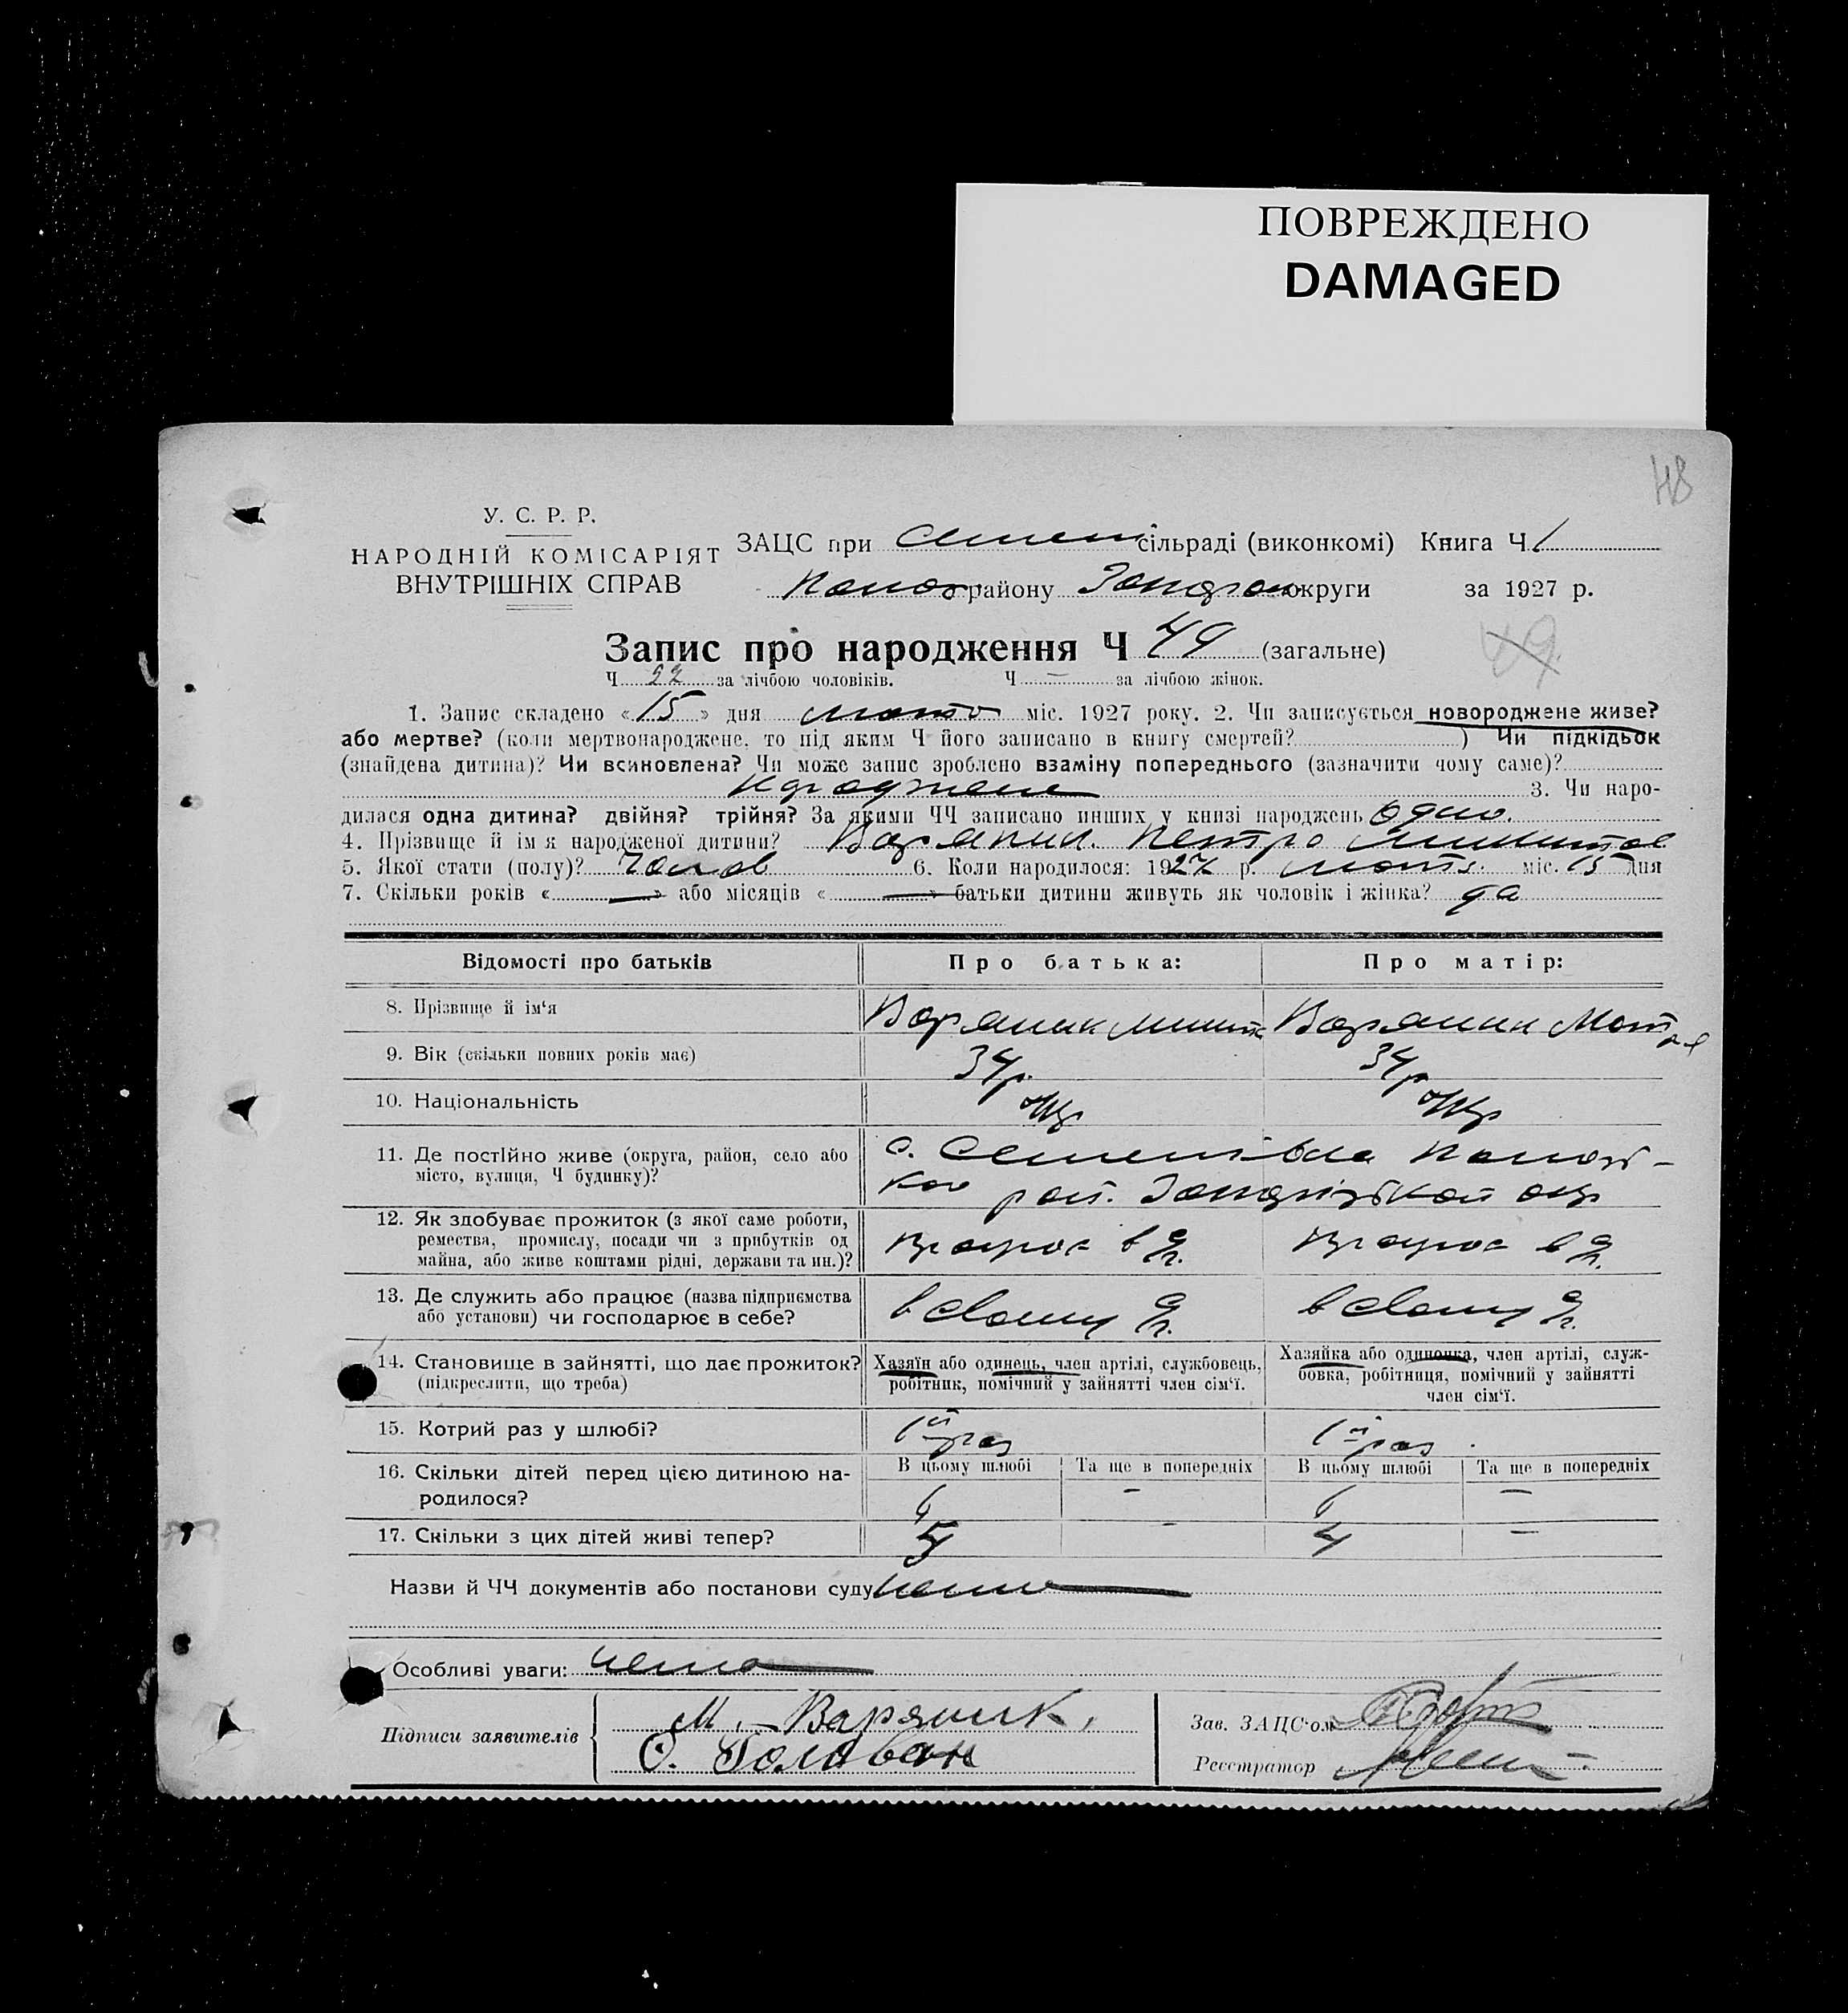 ПОВРЕЖДЕНО
DAMAGED
48
У. С. Р. Р.
НАРОДНІЙ КОМІСАРІЯТ
ВНУТРІШНІХ СПРАВ
ЗАЦС при Семен сільраді (виконкомі) Книга Ч 1
району округи за 1927 р.
Запис про народження Ч 49 (загальне)
49
Ч 22 за лічбою чоловіків. Ч — за лічбою жінок.
1. Запис складено «15» дня міс. 1927 року. 2. Чи записується новороджене живе?
або мертве? (коли мертвонароджене, то під яким Ч його записано в книгу смертей? ) Чи підкідьок
(знайдена дитина)? Чи всиновлена? Чи може запис зроблено взаміну попереднього (зазначити чому саме)?
3. Чи наро-
дилася одна дитина? двійня? трійня? За якими ЧЧ записано инших у книзі народжень одно.
4. Прізвище й імя народженої дитини? Варяник Петро
5. Якої стати (полу)? Чолов 6. Коли народилося: 1927 р. міс. 15 дня
7. Скільки років «—» або місяців «—» батьки дитини живуть як чоловік і жінка? да
Відомості про батьків Про батька: Про матір:
8. Прізвище й ім‘я Варяник Варяник Мотря
9. Вік (скільки повних років має) 34 р. 34 р
10. Національність Укр Укр
11. Де постійно живе (округа, район, село або
місто, вулиця, Ч будинку)?
с. Семенівка
рай. окр
12. Як здобуває прожиток (з якої саме роботи,
ремества, промислу, посади чи з прибутків од
майна, або живе коштами рідні, держави та ин.)?
в в
13. Де служить або працює (назва підприємства
або установи) чи господарює в себе?
в свому в свому
14. Становище в зайнятті, що дає прожиток?
(підкреслити, що треба)
Хазяїн або одинець, член артілі, службовець,
робітник, помічний у зайнятті член сім‘ї.
Хазяйка або одиночка, член артілі, служ-
бовка, робітниця, помічний у зайнятті
член сім‘ї.
15. Котрий раз у шлюбі? 1й раз 1й раз
16. Скільки дітей перед цією дитиною на-
родилося?
В цьому шлюбі Та ще в попередніх В цьому шлюбі Та ще в попередніх
6 — 6 —
17. Скільки з цих дітей живі тепер? — 4 —
Назви й ЧЧ документів або постанови суду нема
Особливі уваги: нема
Підписи заявителів
М. Варяник.
О. Головань
Зав. ЗАЦС‘ом
Реєстратор